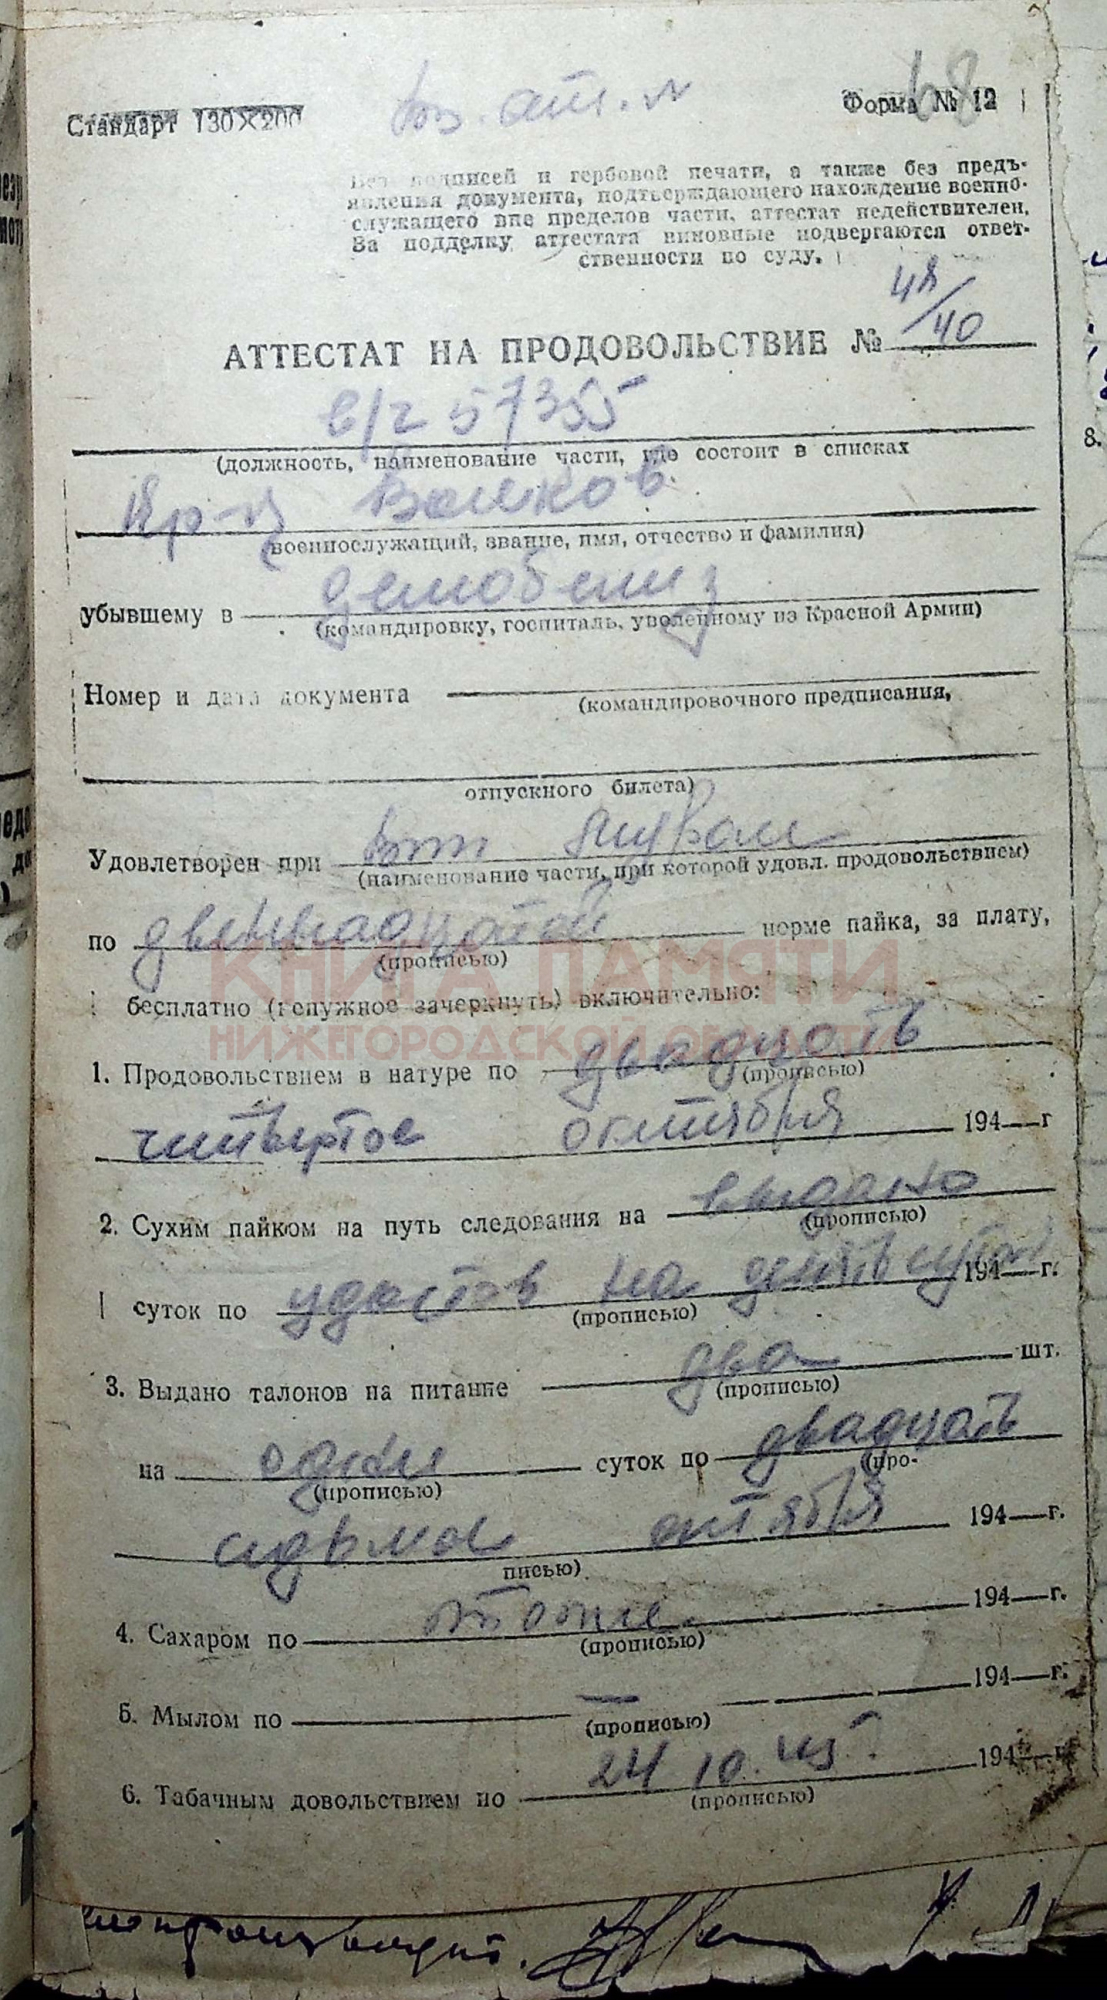 68
Стандарт 130×200
Форма № 12
Без подписей и гербовой печати, а также без предъ-
явления документа, подтверждающего нахождение военно-
служащего вне пределов части, аттестат недействителен.
За подделку аттестата виновные подвергаются ответ-
ственности по суду.
АТТЕСТАТ НА ПРОДОВОЛЬСТВИЕ № 48/40
в/ч 57355
(должность, наименование части, где состоит в списках
Кр-ц Волков
(военнослужащий, звание, имя, отчество и фамилия)
убывшему в демобилиз
(командировку, госпиталь, уволенному из Красной Армии)
Номер и дата документа
(командировочного предписания,
отпускного билета)
Удовлетворен при
(наименование части, при которой удовл. продовольствием)
по двенадцатой норме пайка, за плату,
(прописью)
КНИГА ПАМЯТИ
бесплатно (ненужное зачеркнуть) включительно:
НИЖЕГОРОДСКОЙ ОБЛАСТИ
1. Продовольствием в натуре по двадцать
(прописью)
четвертое октября 194—г
2. Сухим пайком на путь следования на выдано
(прописью)
суток по на 194—г.
(прописью)
3. Выдано талонов на питание два шт.
(прописью)
на одни суток по двадцать
(прописью) (про-
седьмое октября 194—г.
писью)
4. Сахаром по 194—г.
(прописью)
5. Мылом по — 194—г.
(прописью)
6. Табачным довольствием по 24 10. 45. 194
(прописью)
8.